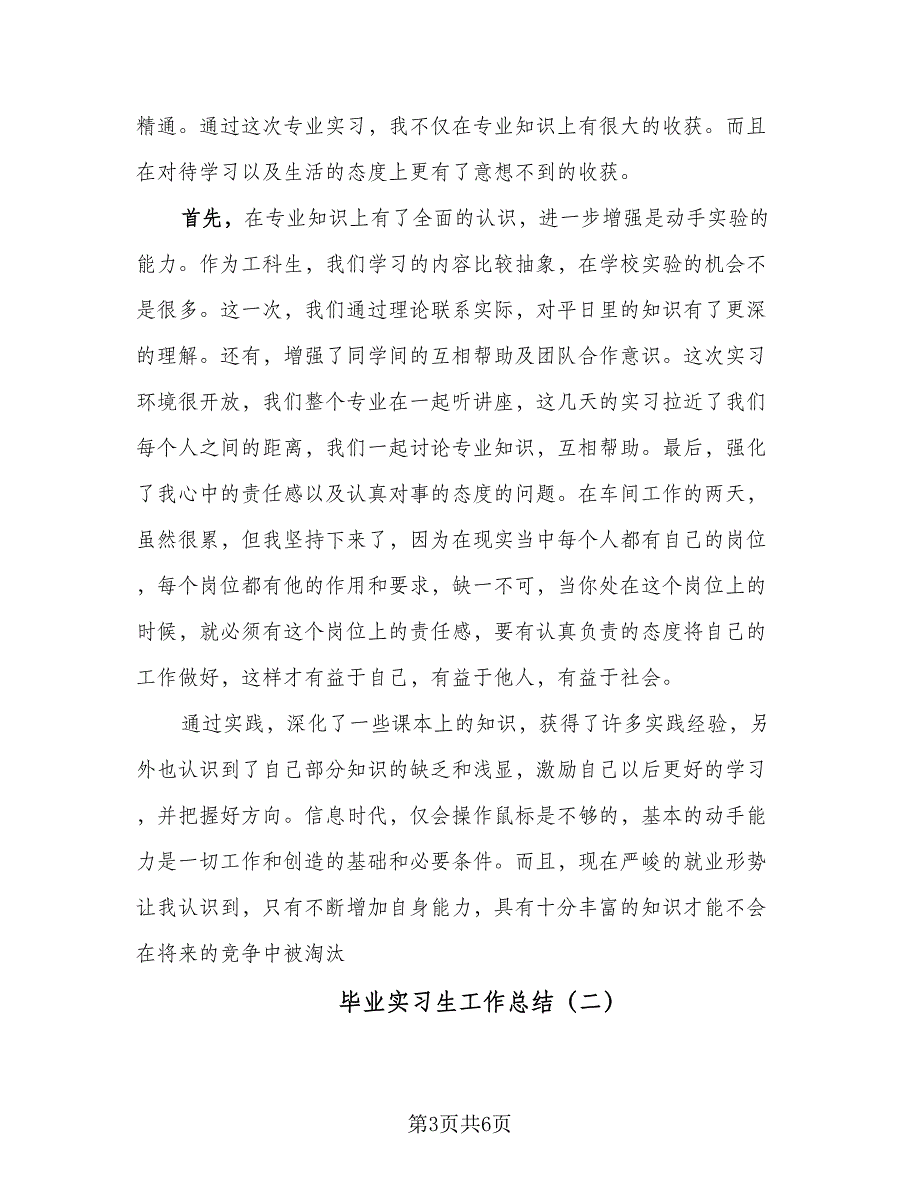 精通。通过这次专业实习，我不仅在专业知识上有很大的收获。而且
在对待学习以及生活的态度上更有了意想不到的收获。
首先，在专业知识上有了全面的认识，进一步增强是动手实验的
能力。作为工科生，我们学习的内容比较抽象，在学校实验的机会不
是很多。这一次，我们通过理论联系实际，对平日里的知识有了更深
的理解。还有，增强了同学间的互相帮助及团队合作意识。这次实习
环境很开放，我们整个专业在一起听讲座，这几天的实习拉近了我们
每个人之间的距离，我们一起讨论专业知识，互相帮助。最后，强化
了我心中的责任感以及认真对事的态度的问题。在车间工作的两天，
虽然很累，但我坚持下来了，因为在现实当中每个人都有自己的岗位
，每个岗位都有他的作用和要求，缺一不可，当你处在这个岗位上的
时候，就必须有这个岗位上的责任感，要有认真负责的态度将自己的
工作做好，这样才有益于自己，有益于他人，有益于社会。
通过实践，深化了一些课本上的知识，获得了许多实践经验，另
外也认识到了自己部分知识的缺乏和浅显，激励自己以后更好的学习
，并把握好方向。信息时代，仅会操作鼠标是不够的，基本的动手能
力是一切工作和创造的基础和必要条件。而且，现在严峻的就业形势
让我认识到，只有不断增加自身能力，具有十分丰富的知识才能不会
在将来的竞争中被淘汰
毕业实习生工作总结（二）
第3页共6页